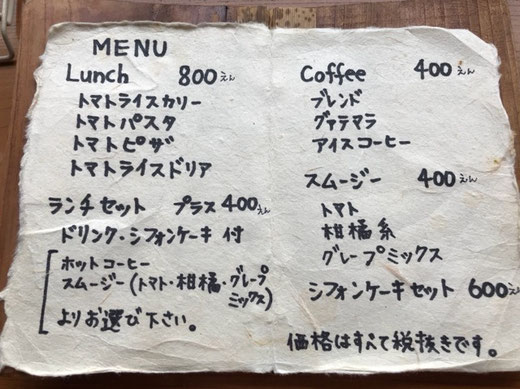 MENU
Lunch 800えん
トマトライスカリー
トマトパスタ
トマトピザ
トマトライスドリア
ランチセット プラス400えん
ドリンク・シフォンケーキ 付
ホットコーヒー
スムージー(トマト・柑橘・グレープ
ミックス)
よりお選び下さい。
Coffee 400えん
ブレンド
グァテマラ
アイスコーヒー
スムージー 400えん
トマト
柑橘系
グレープミックス
シフォンケーキセット 600えん
価格はすべて税抜きです。